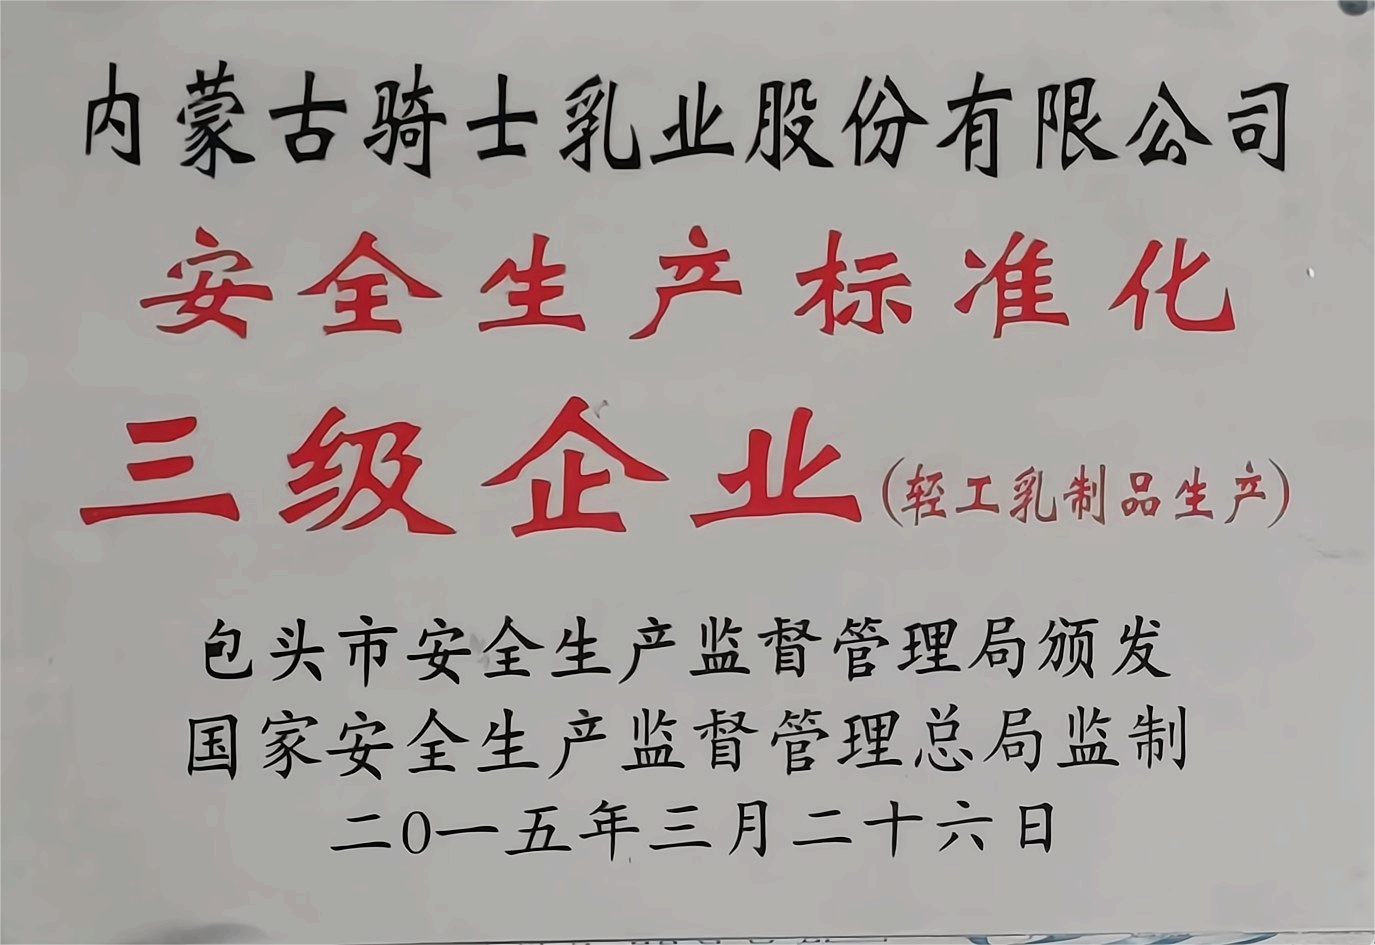 内蒙古骑士乳业股份有限公司
安全生产标准化
三级企业(轻工乳制品生产)
包头市安全生产监督管理局颁发
国家安全生产监督管理总局监制
二0一五年三月二十六日